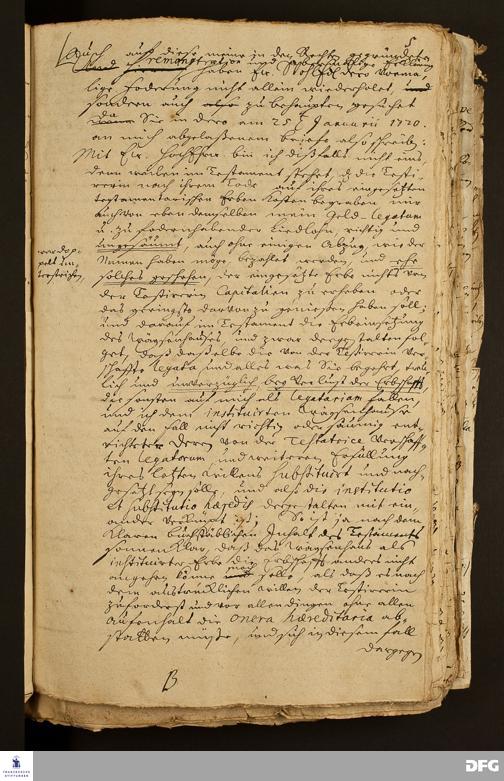 5
auch auf diese meine in den Rechten gegründeten
remonstration und
haben Ew. Vorma-
lige foderung nicht allein wiederholet, und
sondern auch zu behaupten gesucht
da Sie in dero am 25 Januarii 1720.
an mich abgelaßenem briefe also schreiben:
Mit Ew. bin ich dißfalls nicht eins,
denn weilen im Testament stehet, daß die Testi-
rerin nach ihrem Tode auf ihres eingesetzten
testamentarischen Erben Kosten begraben, mir
auch von eben demselben mein Geld-Legatum
u. zu fodern habender Liedlohn, richtig und
ungesäumt, auch ohne einigen Abzug, wie der
Namen haben möge, bezahlet werden, und ehe
solches geschehen, der eingesetzte Erbe nichts von
der Testirerin Capitalien zu erheben oder
das geringste davon zu genießen haben soll;
und darauf im Testament die Erbeinsetzung
des Wäysenhauses, und zwar dergestalten fol-
get, daß daßelbe die von der Testirerin ver-
schaffte Legata und alles was Sie begehret,
lich und unverzüglich bey Verlust der Erbschafft
die sonsten auf mich als Legatariam fallen,
und ich dem instituirten Wäysenhause
auf den fall nicht richtig oder säumig ent-
richteter derer von der Testatrice verschaff-
ten Legatorum, und weiteren Erfüllung
ihres letzten Willens substituirt und nach-
gesetzt seyn solle, und also die institutio
et substitutio hæredis dergestalten mit ein-
ander verknüpft ist; So ist ja nach dem
klaren buchstäblichen Inhalt des Testaments
sonnenklar, daß das Wäysenhaus als
instituirter Erbe die Erbschafft anders nicht
angehen könne noch solle, als daß es nach
dem ausdrücklichen Willen der Testirerin
zuforderst und vor allen dingen ohne allen
Aufenthalt die onera hæreditaria ab-
statten müste, und sich in diesem fall
dargegen
B
wer dop-
pelt un-
terstrichen,
FRANCKESCHE
STIFTUNGEN
DFG